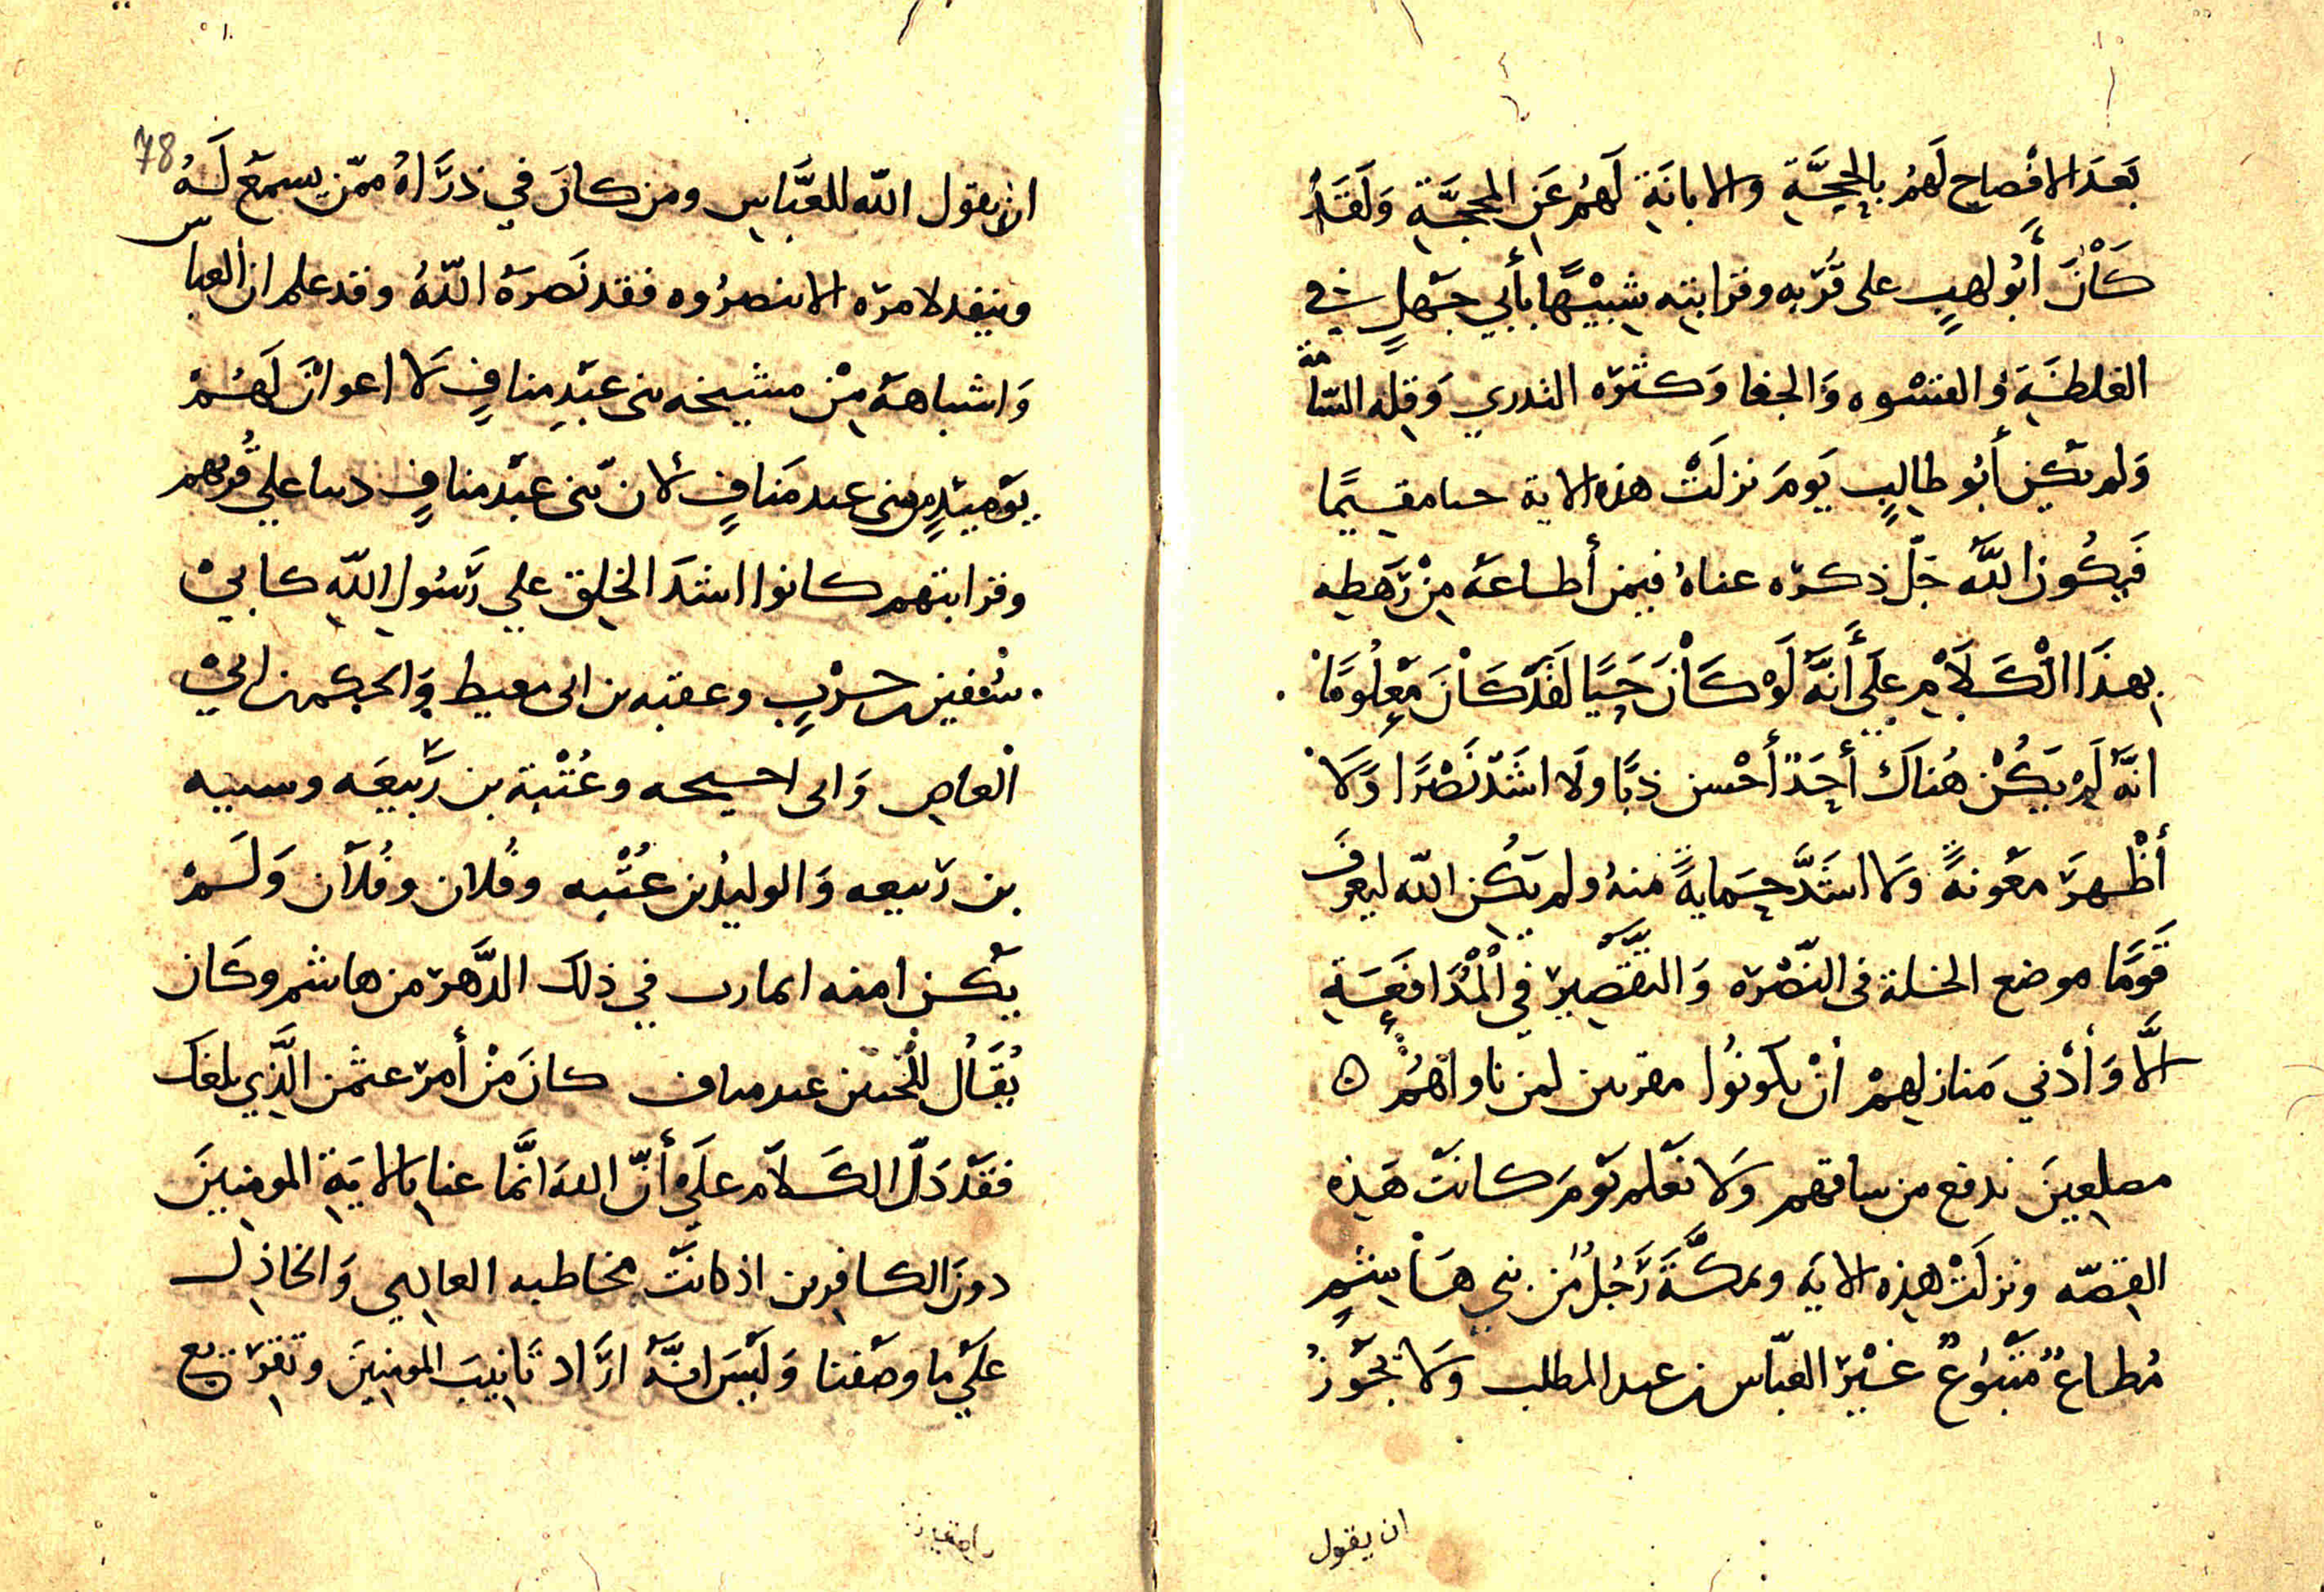 بَعدَ الافْصاحِ لَهمُ بِالحِجَّةِ والابانَةِ لَهمُ عَنِ المحجَّةِ وَلَقَدْ
كَانَ أَبُو لهبٍ على قُرْبِه وقرابتِه شَبِيْهًا بأَبي جَهلٍ في
الغلطَةِ وَالقسْوه وَالجفا وَكثره التدري وَقله السَّآمَّة
وَلم يَكن أَبُو طالبٍ يَومَ نزلَتْ هذه الاية حىا مقيمًا
فَيكُون اللَّهَ جَلّ ذكره عناهُ فيمن أطاعَهُ مِنْ رَهطِه
بِهذَا الْكَلَامِ عَلَى أَنَّهُ لَوْ كَانَ حَيًا لَقَدْ كَانَ مَعْلُومًا
انَّهُ لَمْ يَكُنْ هُناكَ أَحَدٌ أَحْسن ذبًا ولَا اشَدّ نَصْرًا وَلَا
أَظْهرَ معَونةً وَلا اشَدَّ حِمايةً منهُ ولم يَكُن الله ليعرفَ
قَومًا موضع الخلة فى النّصْرَه وَالتقْصِير في الْمُدَافَعَةِ
الَّا وَأَدْني مَنازلهِمْ أنْ يكونُوا مقرىىن لمن ناواهُمْ ه
مصلعِينَ ىدفع من ساقهم وَلا نعْلم يَومَ كانَتْ هَذِه
القِصّه ونزلَتْ هذِه الايَه وىمكّةَ رَجُلٌ مْن بَني هَاشِمٍ
مُطاعٌ مَتْبُوعٌ غَيْرَ العَبّاس بن عبد المطلب وَلا يَجُوز
ان يقول
78
ان يقول الله للعَبَّاسِ ومن كانَ في ذرَّاهُ ممّن يسمعَ لَهُ
وينفد لامرَه الا ىنصرُوه فقد نَصَرَهُ اللّهُ وقد علم ان العباسّ
وَاشباههَ مِنْ مشيخه بنى عَبْدِ منافٍ لا اعوانَ لَهُمْ
يَوَميئذٍ من بنى عبد مَنافٍ لأن بَنى عَبْد منافٍ دىىا علي قُربهم
وقرابتهم كانوا اشدَ الخلِق علي رَسُولِ اللّهِ كابيْ
سُفين حَرْبٍ وعقبه بن ابى معيط وَالحكم بن ابيْ
الْعاصِ وَابى احىحه وعُتْبَة بن رَبيعَه وسىبه
بن رَبيعه وَالوليدُ بن عُتْبه وفُلان وفُلَان وَلَمْ
يَكن اميه المارب في ذلك الدَّهرَ من هاشم وكَان
يُقَالُ لِلْحَيىن عبد مىاف كانَ مَنْ أمَرَ عثمن الَّذِي بلغك
فقَدْ دَلّ الكَلام علَى أنّ اللهَ انَّما عنا بِالايَةِ المومنِينَ
دونَ الكافِرين اذ كانَتْ مخاطبه العالِي وَالخاذِل
علَي ما وصَفنا وَليَسَ انهُ ارَاد تَانِيبَ المومنينَ وتقريع